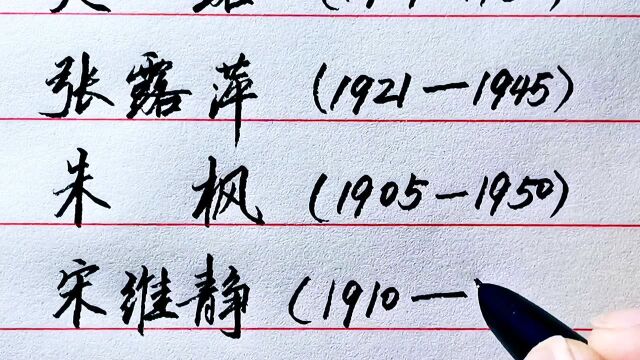 张露萍（1921—1945）
朱枫（1905—1950）
宋维静（1910—